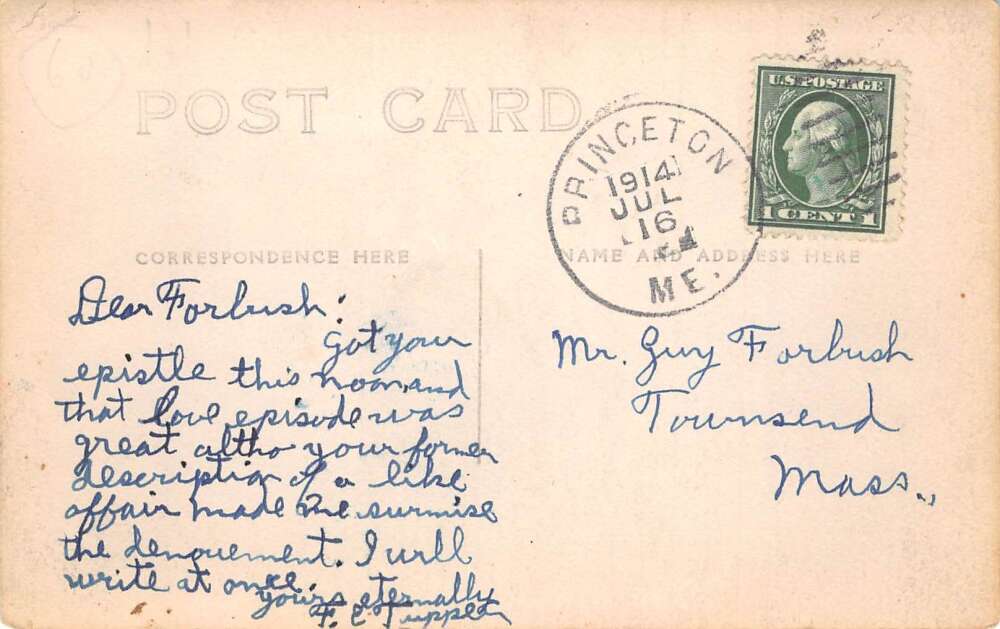 POST CARD
PRINCETON
1914
JUL
16
ME.
U.S. POSTAGE
1 CENT 1
CORRESPONDENCE HERE
NAME AND ADDRESS HERE
Dear Forbush:
Got your
epistle this noon, and
that love episode was
great altho your former
description of a like
affair made me surmise
the denouement. I will
write at once.
yours eternally
F. C. Tupper
Mr. Guy Forbush
Townsend
Mass.,